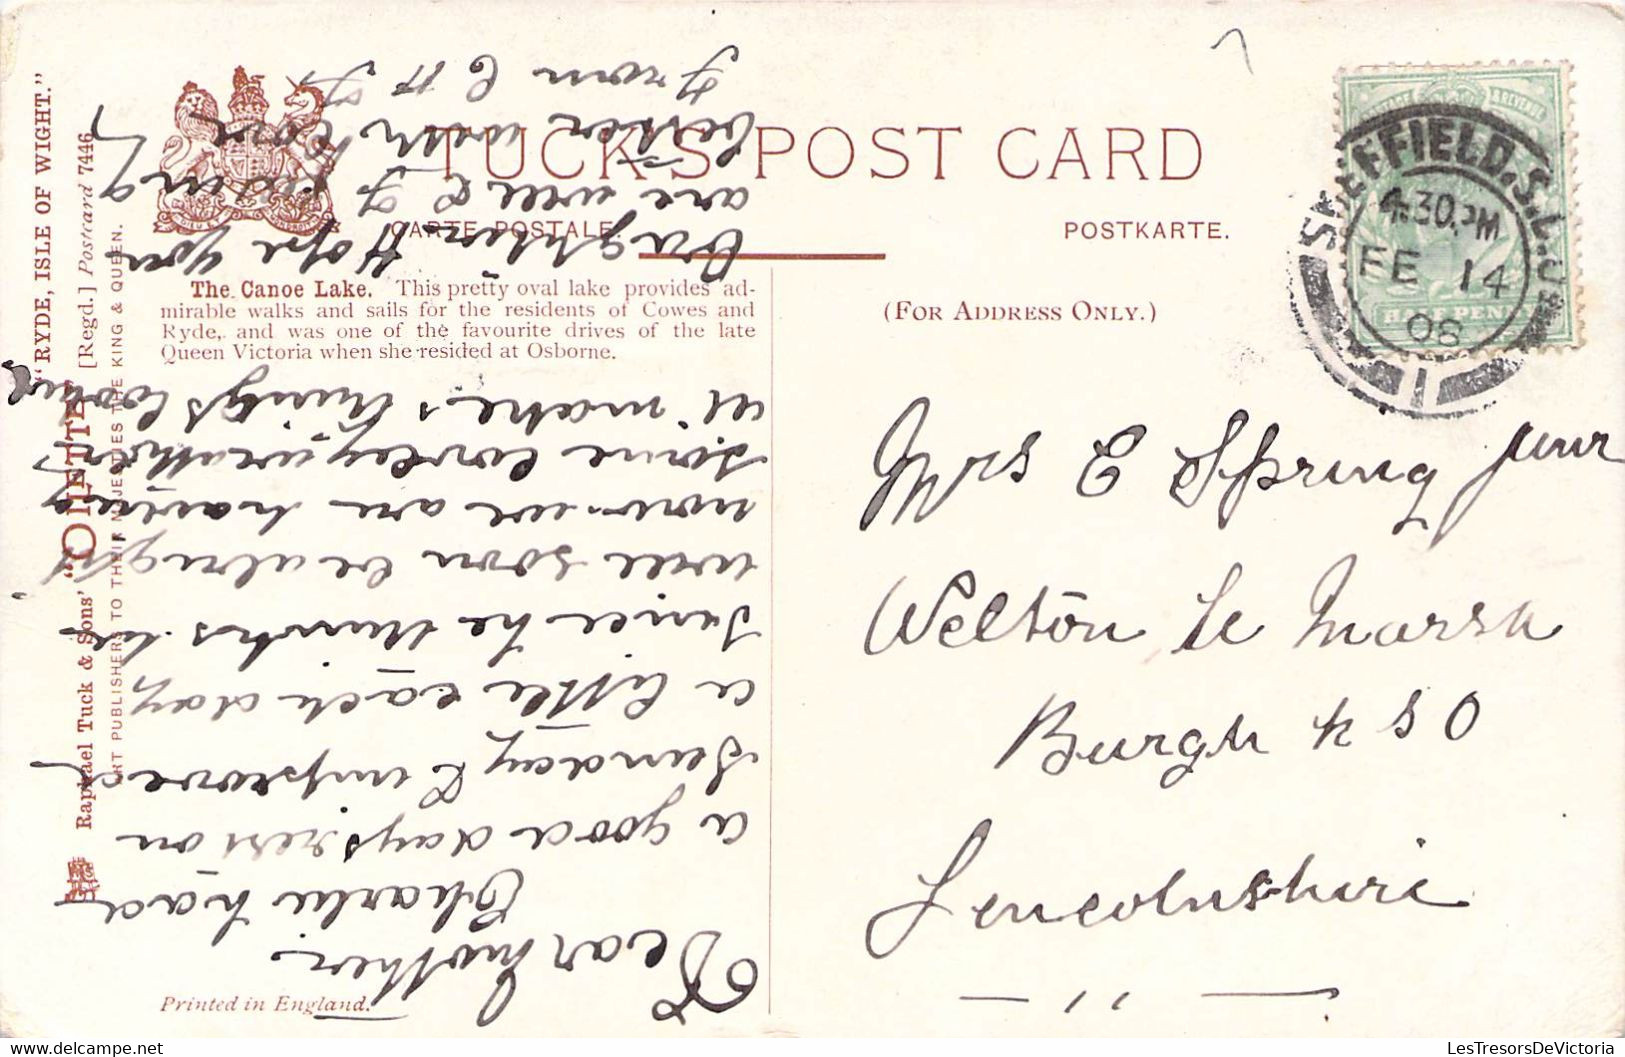 "RYDE, ISLE OF WIGHT."
Raphael Tuck & Sons' "OILETTE" [Regd.] Postcard 7446
ART PUBLISHERS TO THEIR MAJESTIES THE KING & QUEEN.
TUCK'S POST CARD
CARTE POSTALE.
POSTKARTE.
The Canoe Lake. This pretty oval lake provides ad-
mirable walks and sails for the residents of Cowes and
Ryde, and was one of the favourite drives of the late
Queen Victoria when she resided at Osborne.
(FOR ADDRESS ONLY.)
SHEFFIELD.S.L.
4.30.PM
FE 14
08
1
HALF PENNY
& REVENUE
Mrs E Spring Junr
Welton le Marsh
Burgh R S O
Lincolnshire
Dear Mother
Charlie had
a good days rest on
Sunday & improved
a little each day
since he thinks he
will soon be alright
now. we are having
some lovley weather
it makes things look
Brighter Hope you
are well &
better with love
From C H S
Printed in England.
LesTresorsDeVictoria.com